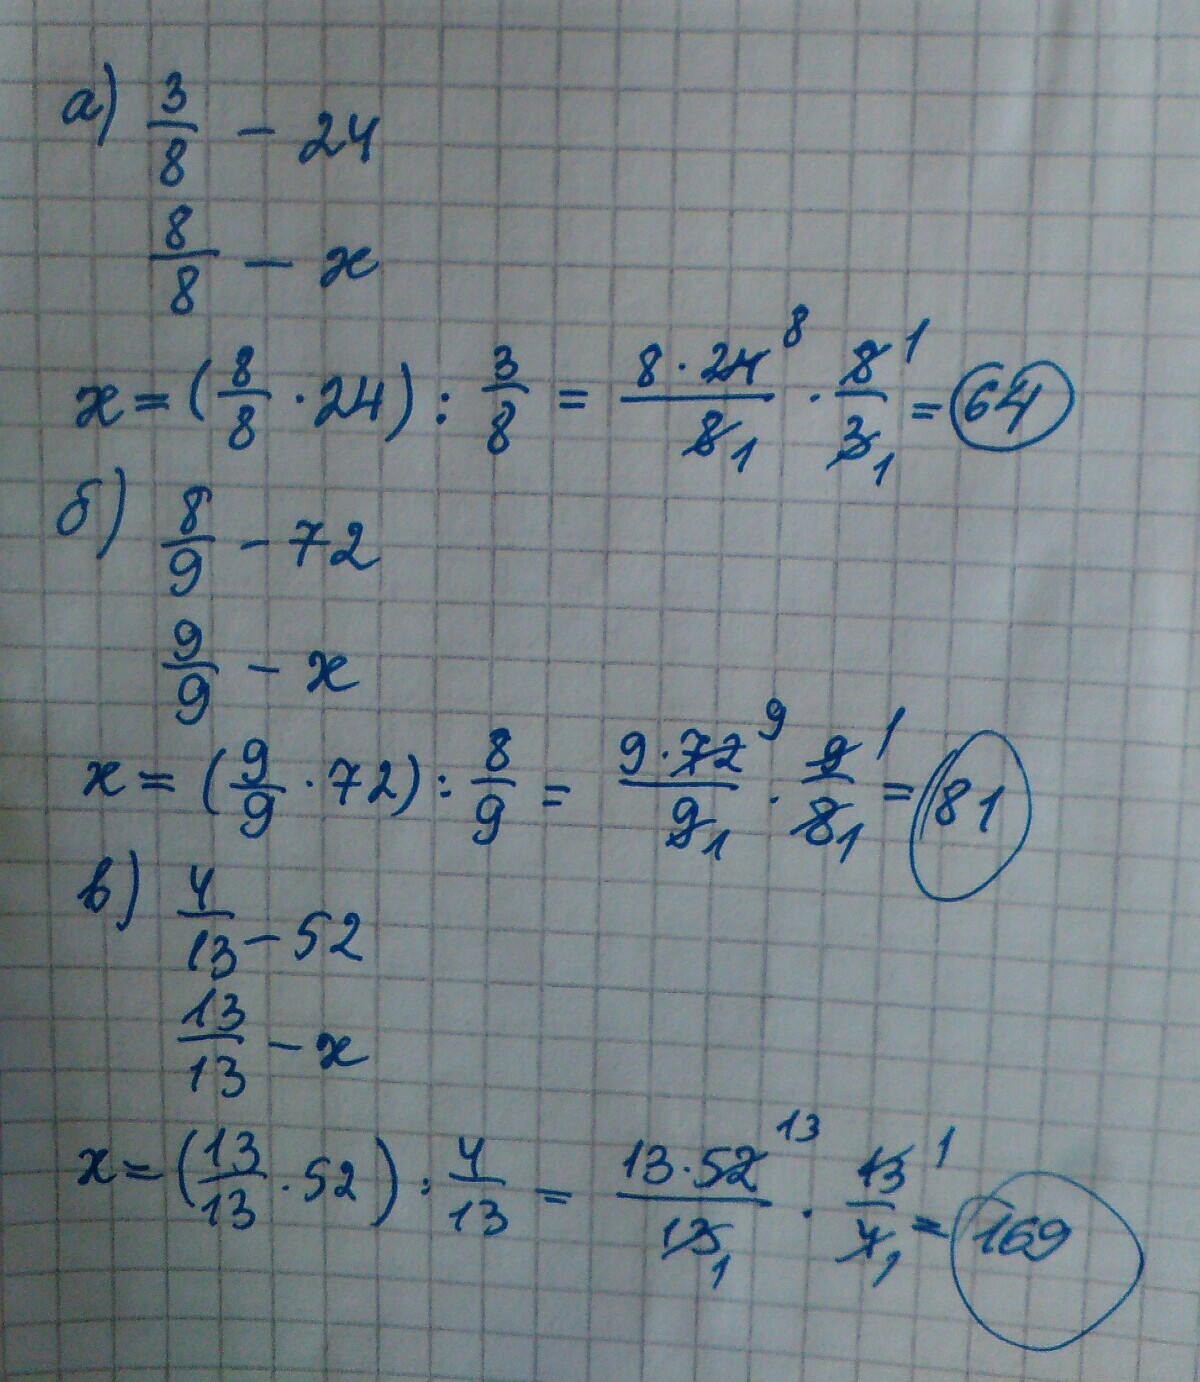 а) 3/8 – 24
8/8 – x
x = (8/8 · 24) : 3/8 = 8·24 8/8 1 · 8 1/3 1 = 64
б) 8/9 – 72
9/9 – x
x = (9/9 · 72) : 8/9 = 9·72 9/9 1 · 9 1/8 1 = 81
в) 4/13 – 52
13/13 – x
x = (13/13 · 52) : 4/13 = 13·52 13/13 1 · 13 1/4 1 = 169